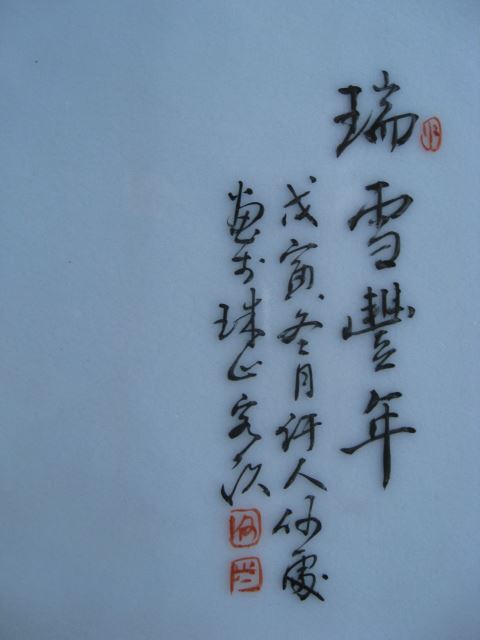 瑞雪豐年
戊寅冬月汗人何處
畫於珠山客次